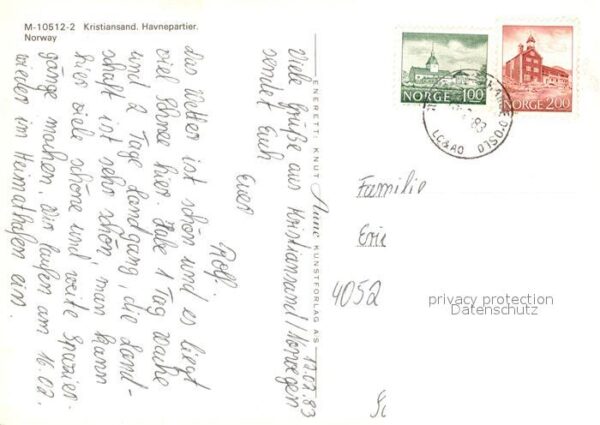 M-10512-2 Kristiansand. Havnepartier.
Norway
NORGE 1.00
NORGE 2.00
83
OSLO
ENERETT: KNUT Aune KUNSTFORLAG AS
12.02.83
Viele Grüße aus Kristiansand/Norwegen
sendet Euch
Euer
Rolf.
Das Wetter ist schön und es liegt
viel Schnee hier. Habe 1 Tag Wache
und 2 Tage Landgang, die Land-
schaft ist sehr schön, man kann
hier viele schöne und weite Spazier-
gänge machen. Wir laufen am 16.02.
wieder im Heimathafen ein.
Familie
Eric
4052
privacy protection
Datenschutz